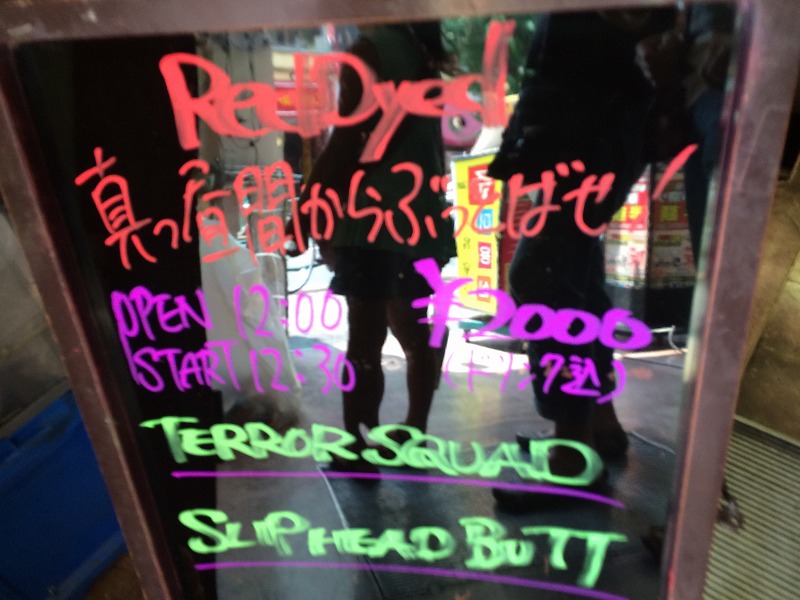 Red Dyed
真っ昼間からぶっとばせ!
OPEN 12:00 ¥2000
START 12:30 (ドリンク込)
TERROR SQUAD
SLIP HEAD BUTT